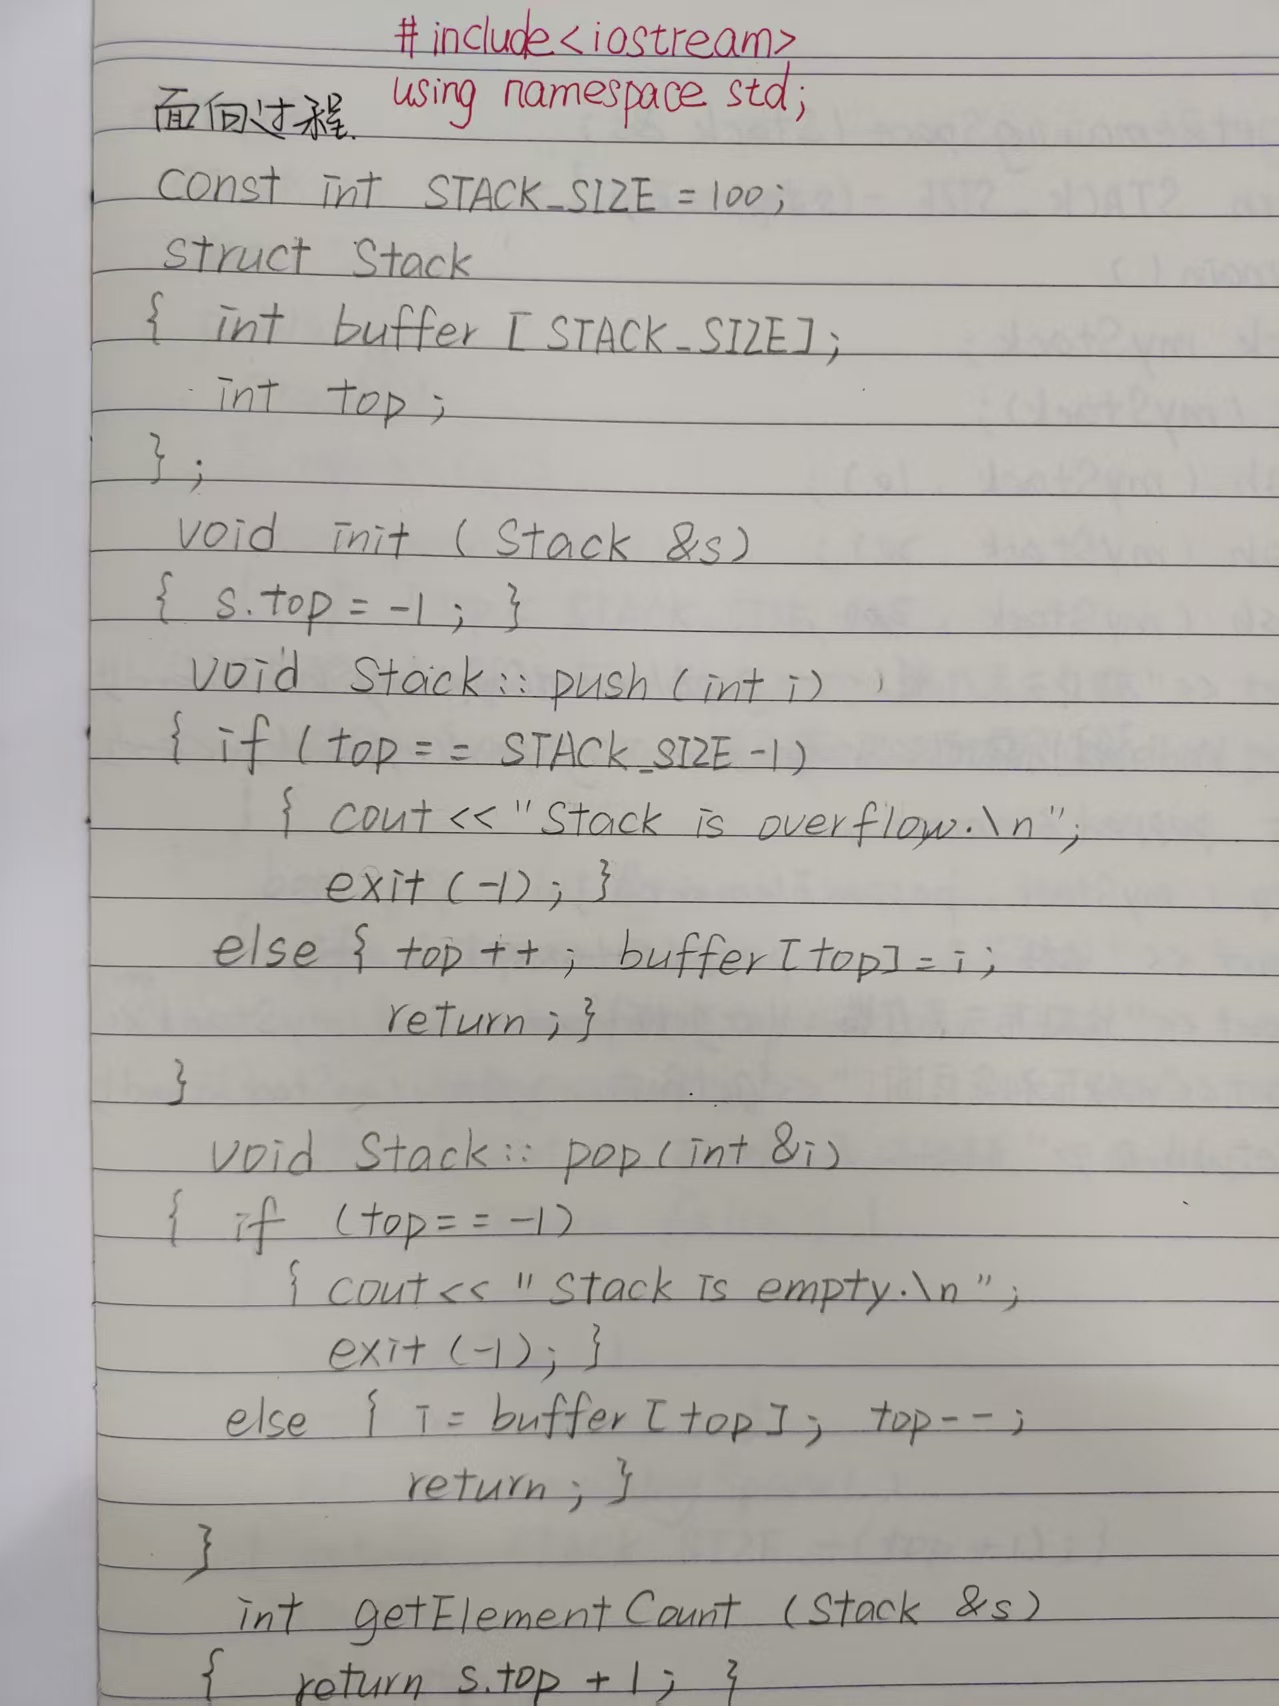 #include<iostream>
using namespace std;
面向过程.
const int STACK_SIZE = 100;
struct Stack
{ int buffer [STACK_SIZE];
int top;
};
void init (Stack &s)
{ s.top = -1; }
void Stack::push(int i)
{ if (top == STACK_SIZE -1)
{ cout << "Stack is overflow.\n";
exit (-1); }
else { top ++; buffer[top] = i;
return; }
}
void Stack::pop(int &i)
{ if (top == -1)
{ cout << "Stack is empty.\n";
exit (-1); }
else { i = buffer [top]; top--;
return; }
}
int getElementCount (Stack &s)
{ return s.top + 1; }